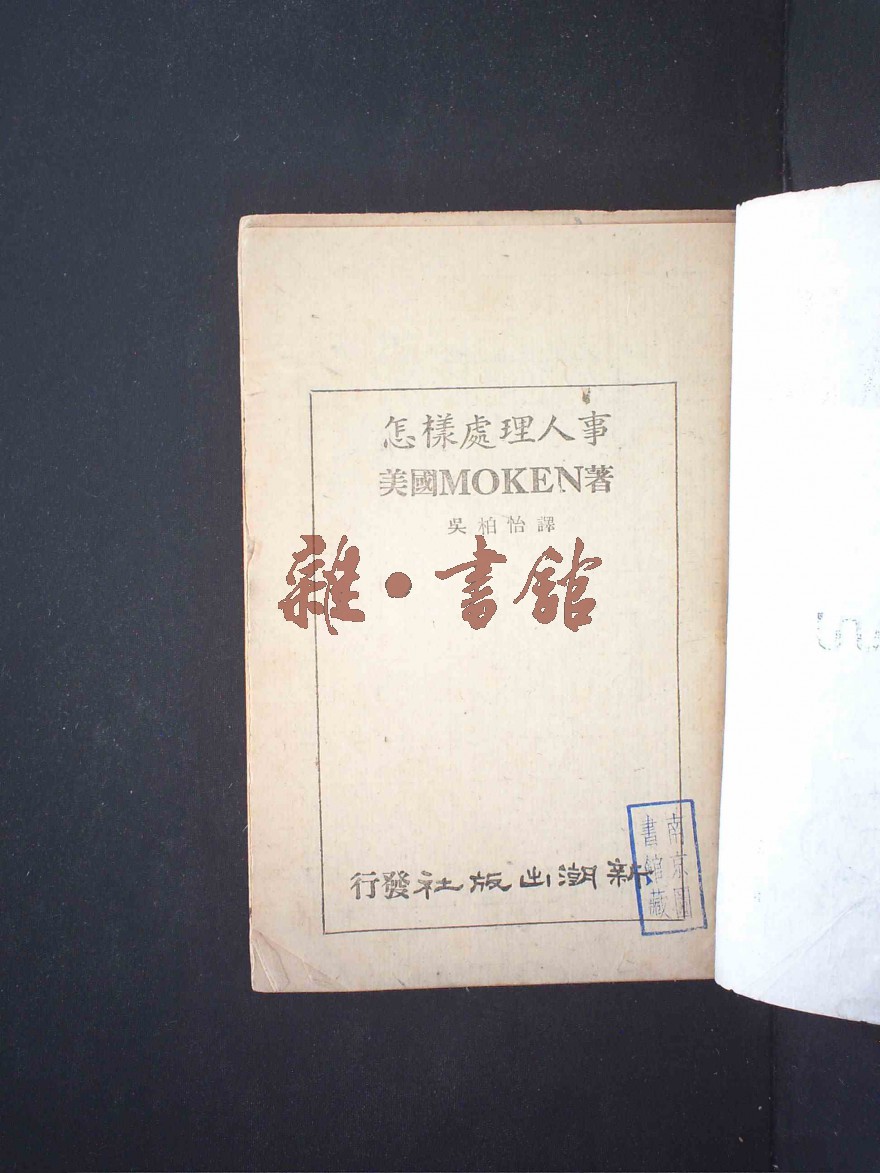 怎樣處理人事
美國MOKEN著
吳柏怡譯
雜·書館
新潮出版社發行
南京圖
書館藏